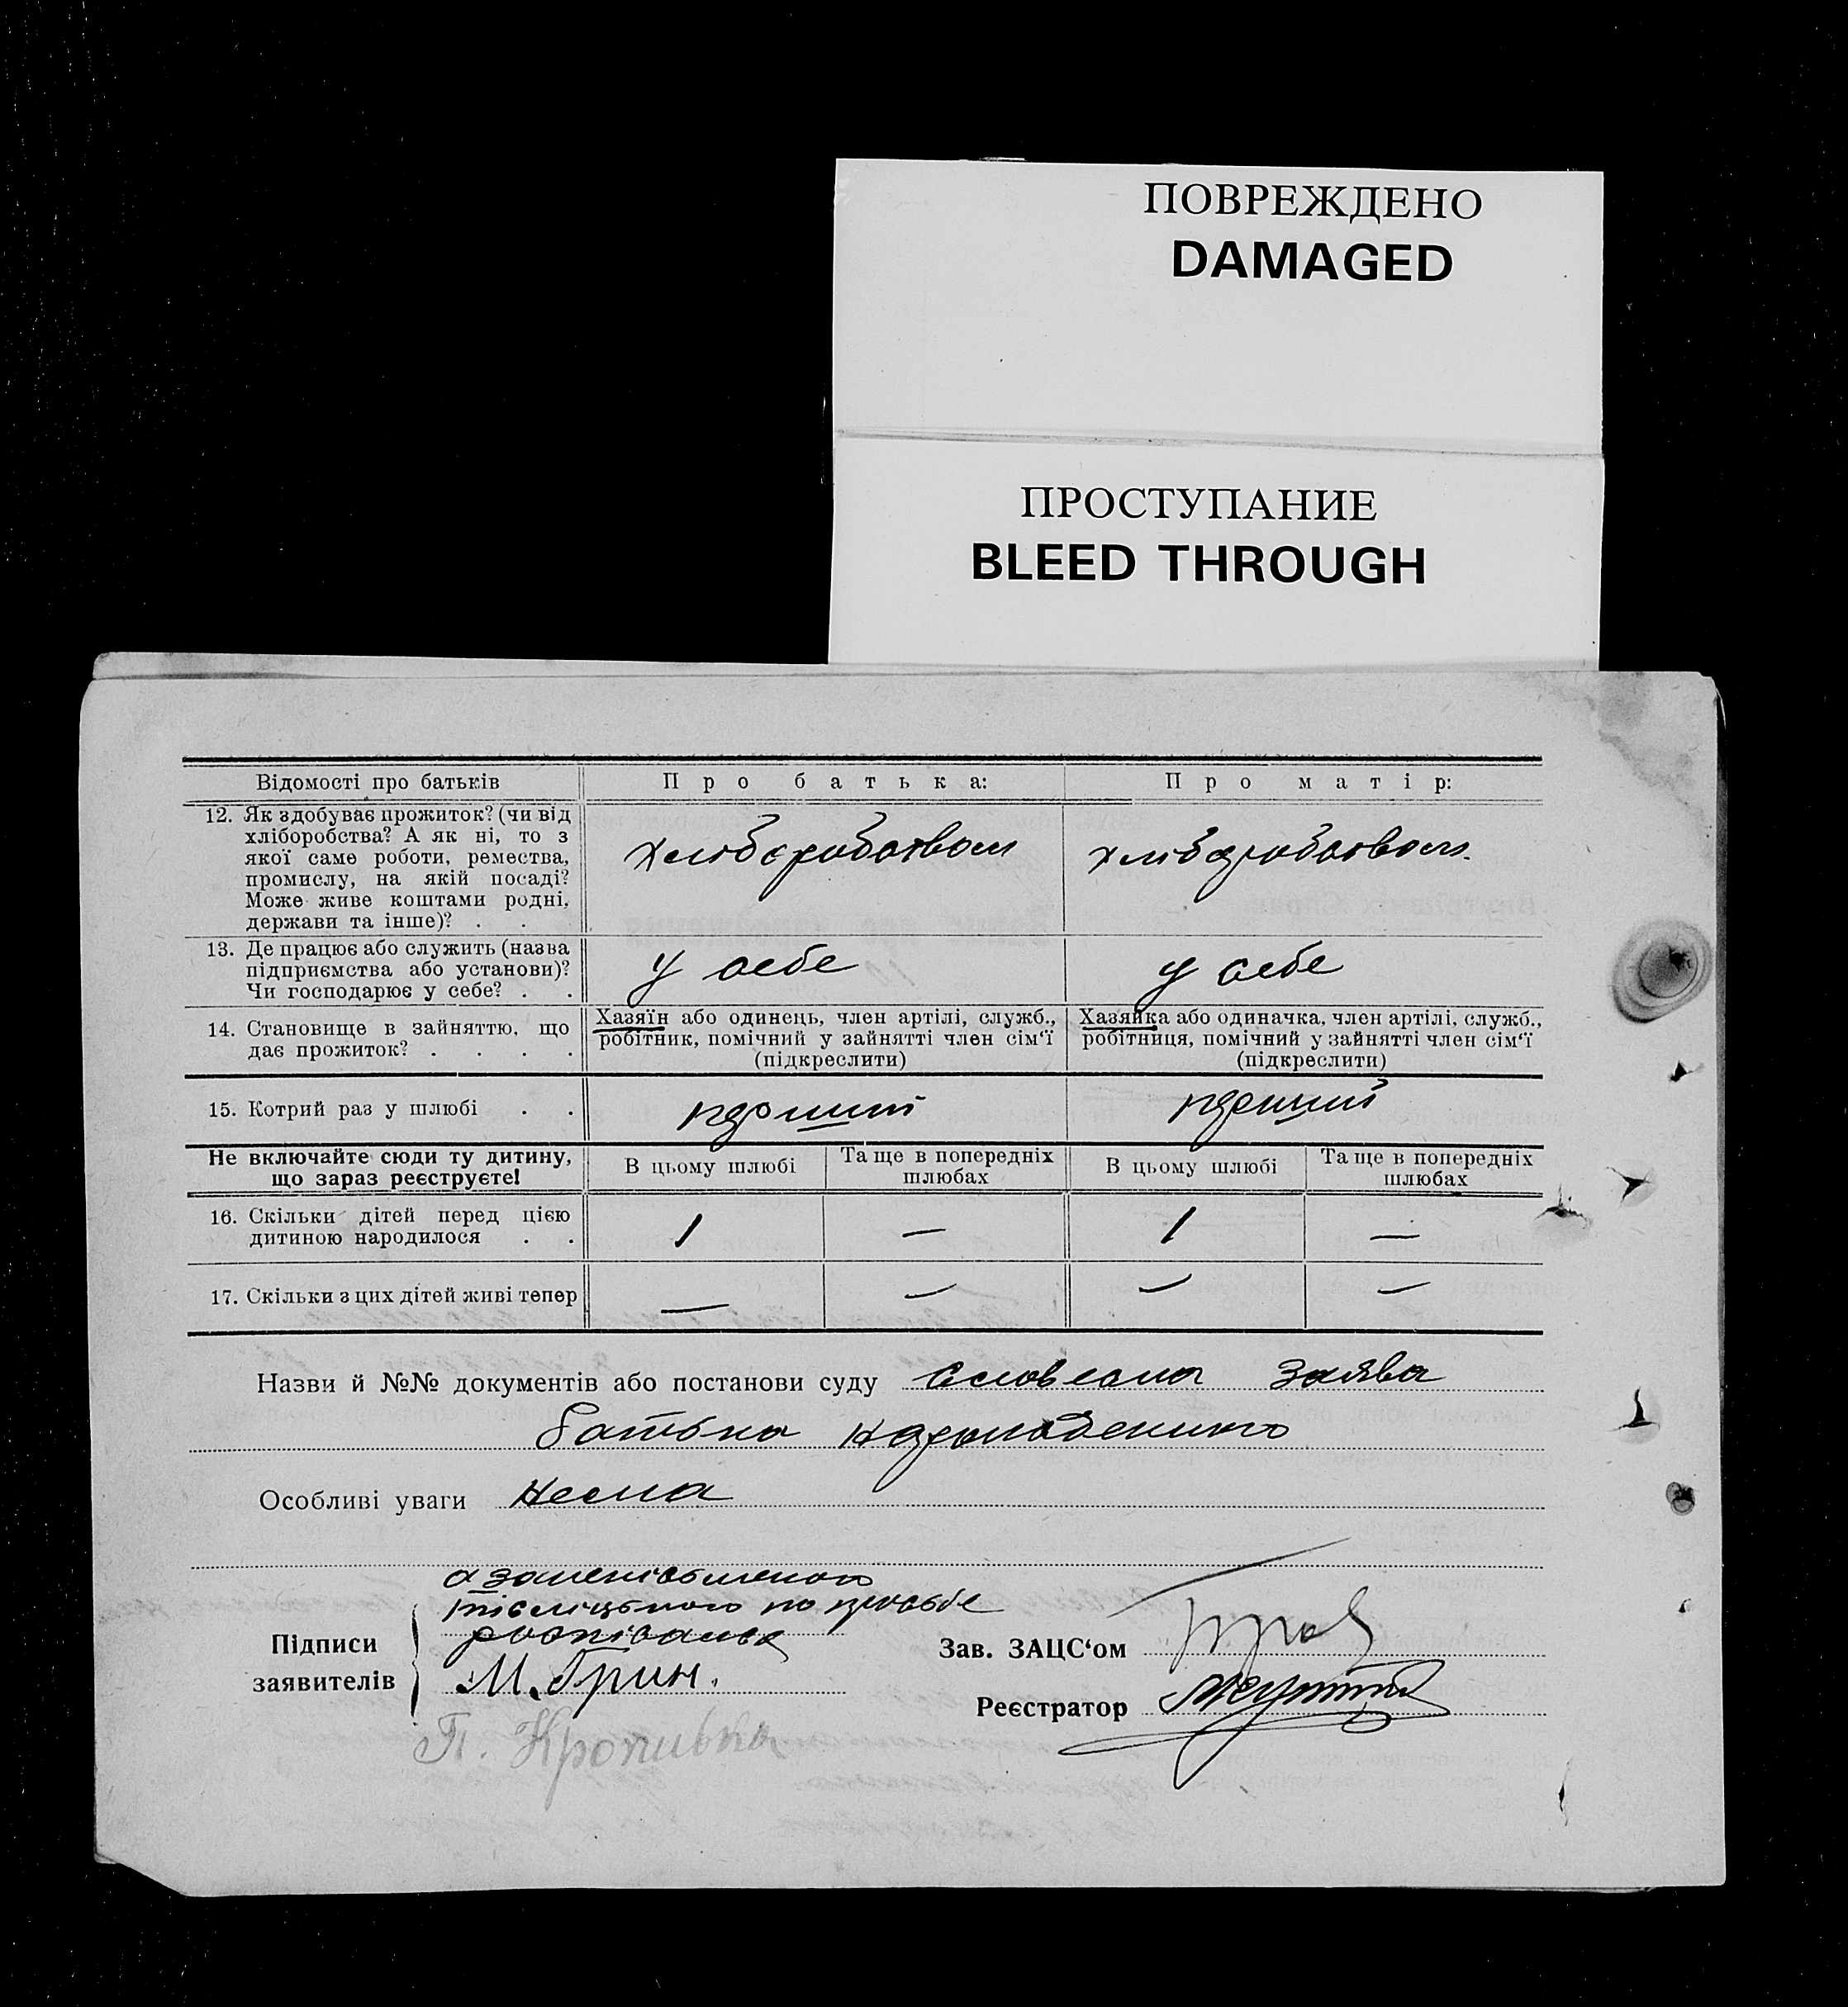 ПОВРЕЖДЕНО
DAMAGED
ПРОСТУПАНИЕ
BLEED THROUGH
Відомості про батьків Про батька: Про матір:
12. Як здобуває прожиток? (чи від
хліборобства? А як ні, то з
якої саме роботи, ремества,
промислу, на якій посаді?
Може живе коштами родні,
держави та інше)? . .
хліборобством хліборобством.
13. Де працює або служить (назва
підприємства або установи)?
Чи господарює у себе? . .
у себе у себе
14. Становище в зайняттю, що
дає прожиток? . . . .
Хазяїн або одинець, член артілі, служб.,
робітник, помічний у зайнятті член сім‘ї
(підкреслити)
Хазяйка або одиначка, член артілі, служб.,
робітниця, помічний у зайнятті член сім‘ї
(підкреслити)
15. Котрий раз у шлюбі . . перший перший
Не включайте сюди ту дитину,
що зараз реєструєте!
В цьому шлюбі
Та ще в попередніх
шлюбах
В цьому шлюбі
Та ще в попередніх
шлюбах
16. Скільки дітей перед цією
дитиною народилося . .
1 — 1 —
17. Скільки з цих дітей живі тепер — — — —
Назви й №№ документів або постанови суду словесна заява
батька
Особливі уваги нема
по просьбе
Підписи
заявителів
М. Грин.
П. Кропивка
Зав. ЗАЦС‘ом
Реєстратор